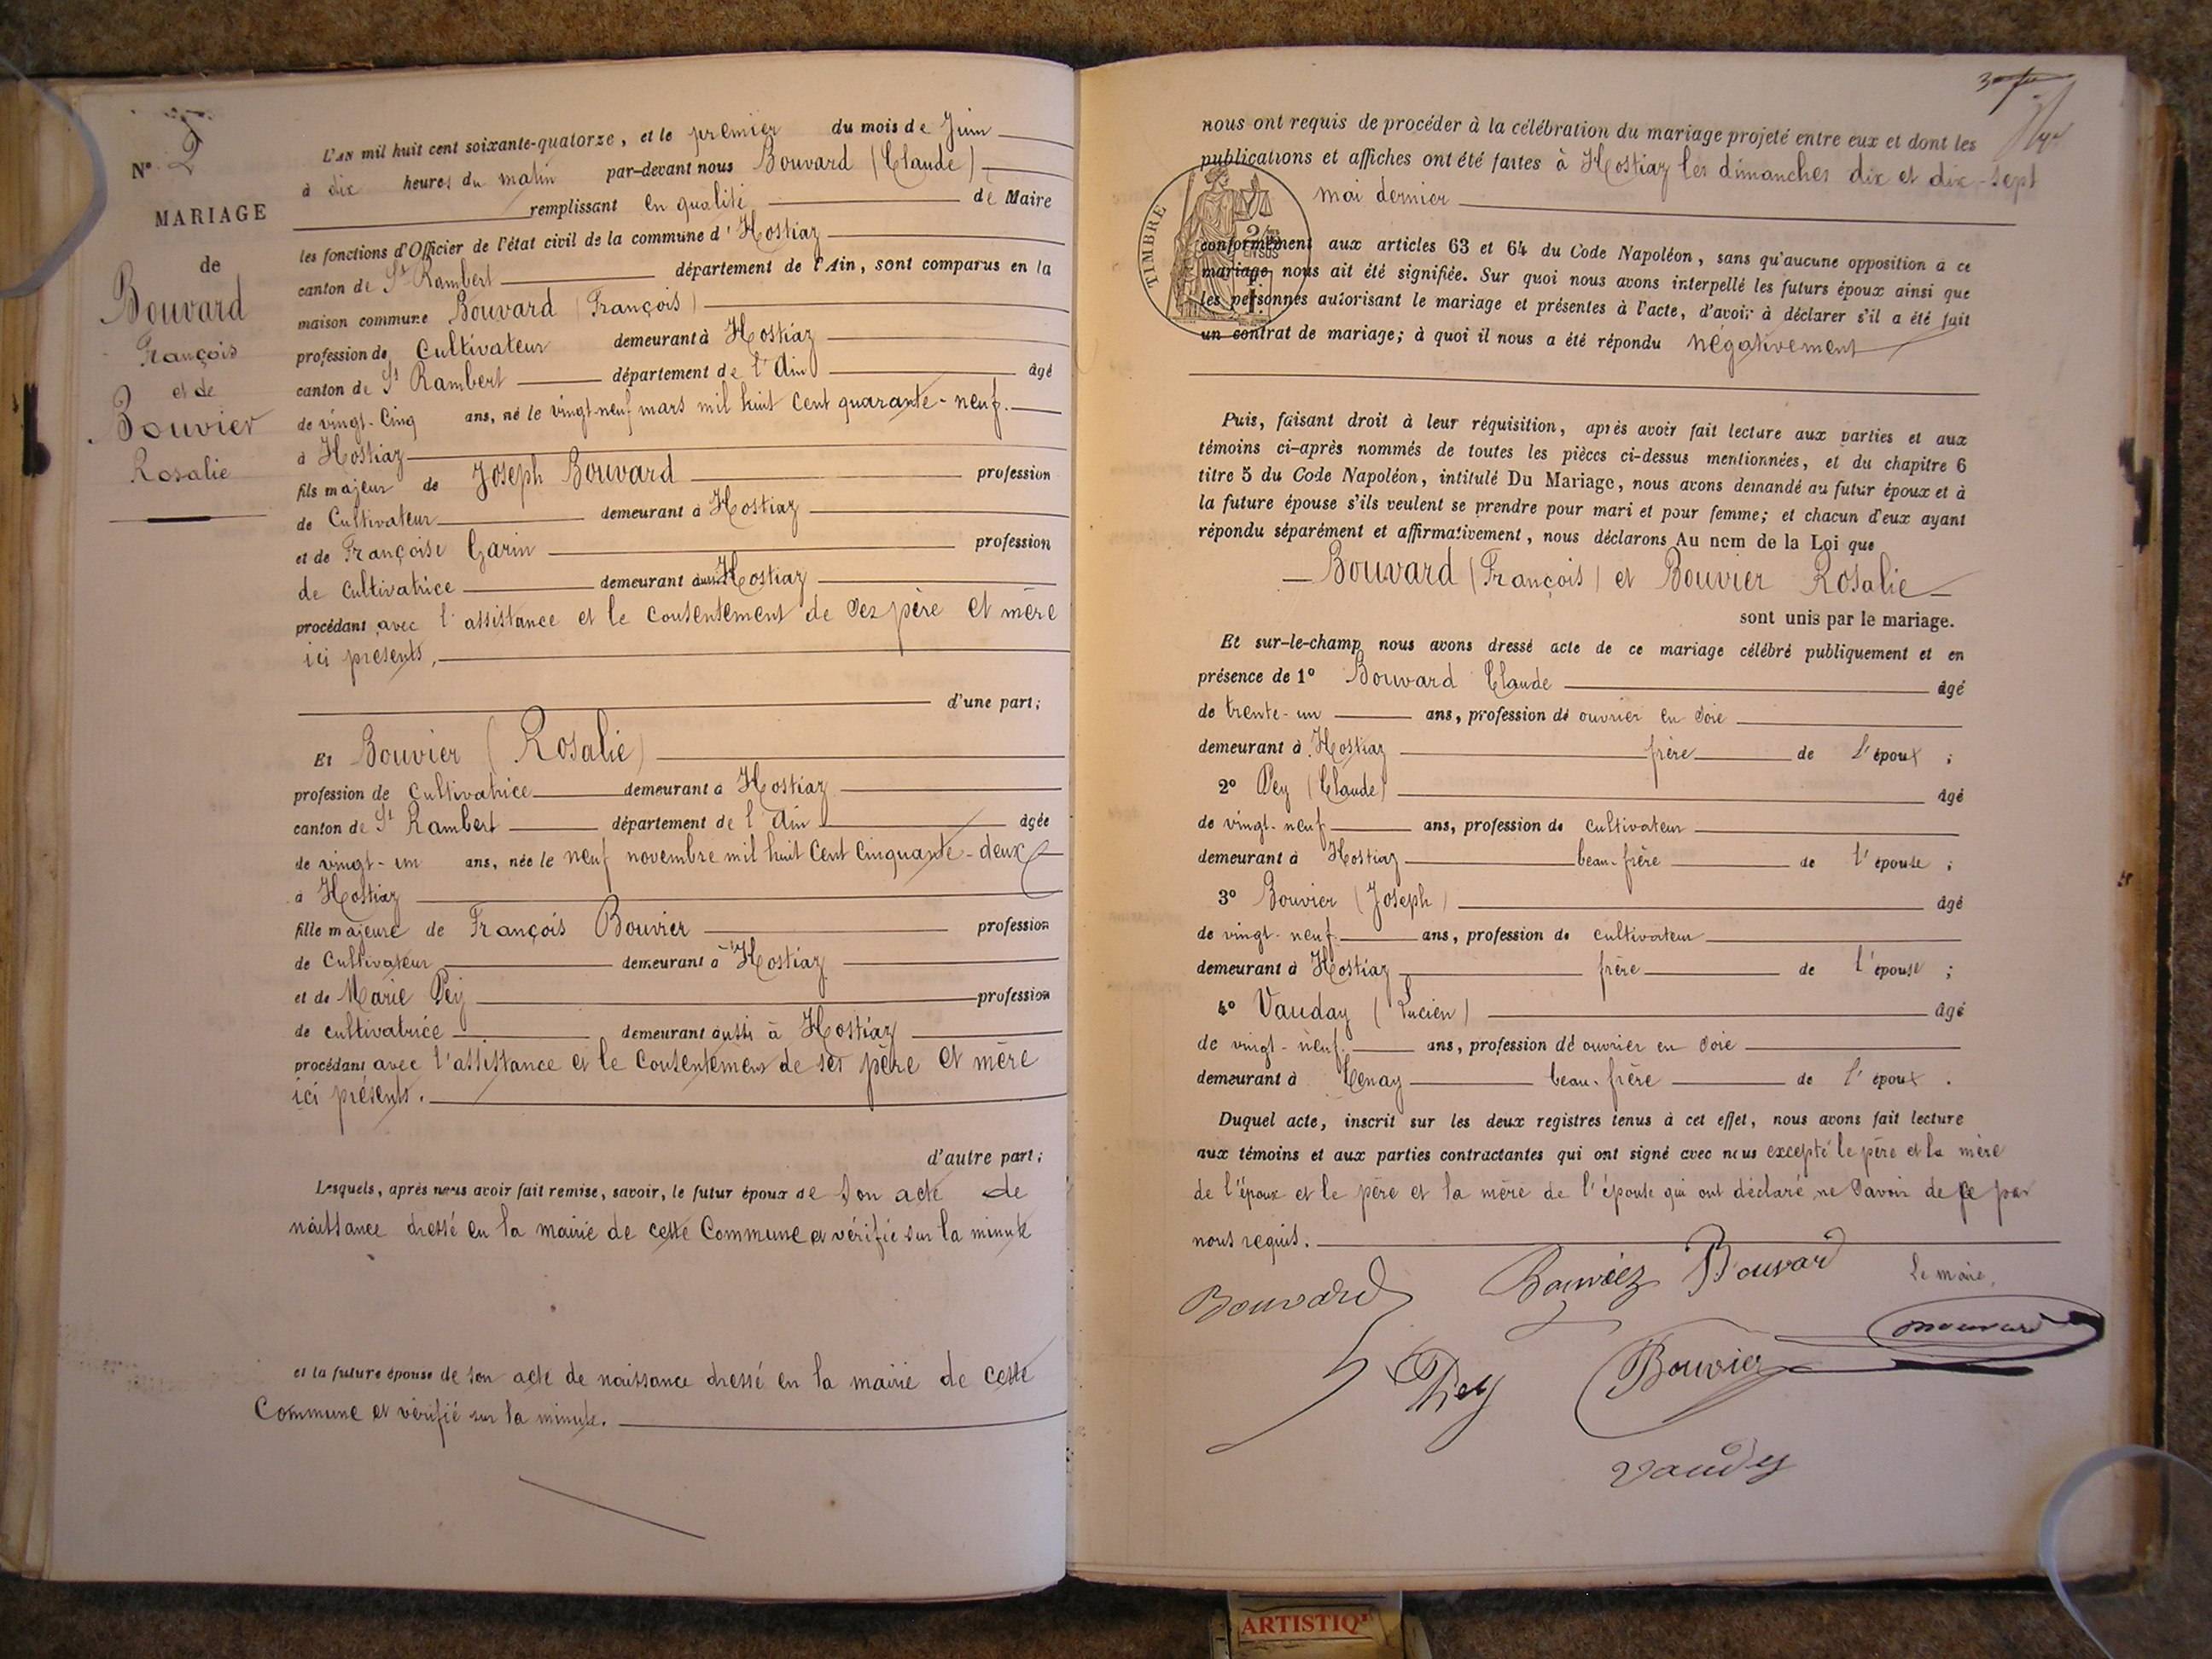 N° 2
MARIAGE
de
Bouvard
François
et de
Bouvier
Rosalie
L'AN mil huit cent soixante-quatorze, et le premier du mois de Juin
à dix heures du matin par-devant nous Bouvard (Claude)
remplissant en qualité de Maire
les fonctions d'Officier de l'état civil de la commune d'Hostiaz
canton de St Rambert département de l'Ain, sont comparus en la
maison commune Bouvard (François)
profession de Cultivateur demeurant à Hostiaz
canton de St Rambert département de l'Ain âgé
de vingt-Cinq ans, né le vingt-neuf mars mil huit Cent quarante-neuf.
à Hostiaz
fils majeur de Joseph Bouvard profession
de Cultivateur demeurant à Hostiaz
et de Françoise Garin profession
de Cultivatrice demeurant aussi Hostiaz
procédant avec l'assistance et le Consentement de Ses père et mère
ici présents,
d'une part;
Et Bouvier (Rosalie)
profession de Cultivatrice demeurant à Hostiaz
canton de St Rambert département de l'Ain âgée
de vingt-un ans, née le neuf novembre mil huit Cent Cinquante-deux
à Hostiaz
fille majeure de François Bouvier profession
de Cultivateur demeurant à Hostiaz
et de Marie Pey profession
de cultivatrice demeurant aussi à Hostiaz
procédant avec l'assistance et le Consentement de ses père et mère
ici présents.
d'autre part;
Lesquels, après nous avoir fait remise, savoir, le futur époux de Son acte de
naissance dressé en la mairie de cette Commune et vérifié sur la minute
et la future épouse de son acte de naissance dressé en la mairie de cette
Commune et vérifié sur la minute.
nous ont requis de procéder à la célébration du mariage projeté entre eux et dont les
publications et affiches ont été faites à Hostiaz les dimanches dix et dix-sept
mai dernier
TIMBRE
conformément aux articles 63 et 64 du Code Napoléon, sans qu'aucune opposition à ce
mariage nous ait été signifiée. Sur quoi nous avons interpellé les futurs époux ainsi que
les personnes autorisant le mariage et présentes à l'acte, d'avoir à déclarer s'il a été fait
un contrat de mariage; à quoi il nous a été répondu négativement
Puis, faisant droit à leur réquisition, après avoir fait lecture aux parties et aux
témoins ci-après nommés de toutes les pièces ci-dessus mentionnées, et du chapitre 6
titre 5 du Code Napoléon, intitulé Du Mariage, nous avons demandé au futur époux et à
la future épouse s'ils veulent se prendre pour mari et pour femme; et chacun d'eux ayant
répondu séparément et affirmativement, nous déclarons Au nom de la Loi que
Bouvard (François) et Bouvier Rosalie
sont unis par le mariage.
Et sur-le-champ nous avons dressé acte de ce mariage célébré publiquement et en
présence de 1° Bouvard Claude âgé
de trente-un ans, profession de ouvrier en Soie
demeurant à Hostiaz frère de l'époux ;
2° Pey (Claude) âgé
de vingt-neuf ans, profession de cultivateur
demeurant à Hostiaz beau-frère de l'épouse ;
3° Bouvier (Joseph) âgé
de vingt-neuf ans, profession de cultivateur
demeurant à Hostiaz frère de l'épouse ;
4° Vauday (Lucien) âgé
de vingt-neuf ans, profession de ouvrier en Soie
demeurant à Tenay beau-frère de l'époux .
Duquel acte, inscrit sur les deux registres tenus à cet effet, nous avons fait lecture
aux témoins et aux parties contractantes qui ont signé avec nous excepté le père et la mère
de l'époux et le père et la mère de l'épouse qui ont déclaré ne Savoir de ce par
nous requis.
Bouvard Bouviez Bouvard Le maire,
Bouvard
Pey Bouvier
Vaudey
ARTISTIQ